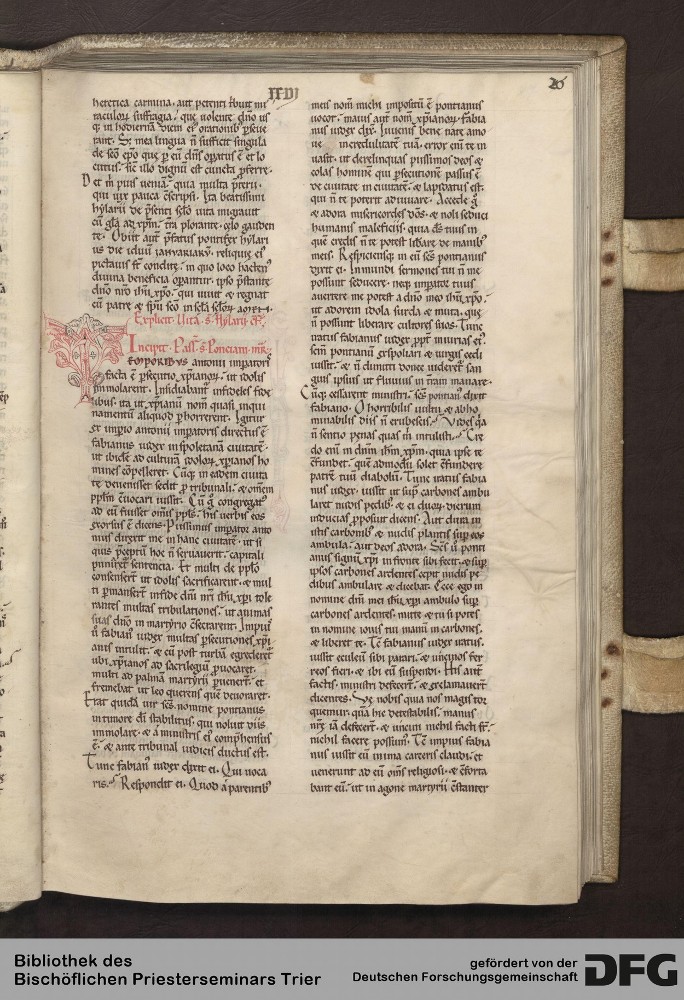 XXVI
26
heretica carmina. aut petenti tbuit mi
raculoꝝ suffragia. que uolente dno us
q; in hodiernū diem ei orationib; pseue
rant. Sꝫ mea lingua n sufficit singula
de sco epo que p eū dns opatus ē et lo
cutus. sic illo digni est cuncta pferre.
qui uix pauca scripsi. Ita beatissimi
hylarii de psenti sclo uita migrauit
cū gla ad xpm. tra plorante. celo gauden
te. Obiit aut pfatus pontifex hylari
us die iduū ianuariarū. reliquie ei
pictauis st condite. in quo loco hacten
diuina beneficia opantur. ipso pstante
dno nro ihu xpo. qui uiuit & regnat
cū patre & spu sco in scla scloꝝ. amen.
Explicit Uita s. Hylarii ēp.
Incipit Pass s. Ponciani mr.
Temporibus antonii imparatoris
facta ē psecutio xpianoꝝ. ut idolis
immolarent. Insidiabant infideles fide
libus. ita ut xpianū nom quasi inqui
namentū aliquod phorrerent. Igitur
ex impio antonii imparatoris directus ē
fabianus iudex in spoletanā ciuitatē.
ut ibidē ad culturā idoloꝝ xpianos ho
mines cōpelleret. Cūq; in eadem ciuita
te deuenisset sedit p tribunali. & omem
pplm cuocari iussit. Cū g congregat
ad eū fuisset omis ppls. his uerbis eos
exorsus ē dicens. Piissimus impator anto
nius direxit me in hanc ciuitatē. ut si
quis pceptū hoc n seruauerit. capitali
puniret sentencia. Et multi de pplo
consenserт ut idolis sacrificarent. & mul
ti pmanserт in fide dni nri ihu xpi tole
rantes multas tribulationes. ut animas
suas dno in martyrio csecrarent. Impi
u fabian iudex multas psecutiones xpi
anis intulit. & cū post turbā egrederet
ubi xpianos ad sacrilegiū puocaret.
multi ad palmā martyrii puenerт. et
fremebat ut leo querens que deuoraret.
Erat quidā uir scs. nomine pontianus
in timore di stabilitus. qui noluit diis
immolare. & a ministris ei comphensus
ē. & ante tribunal iudicis ductus est.
Tunc fabian iudex dixit ei. Qui uoca
ris. Respondit ei. Quod a parentib;
meis nom michi impositū ē pontianus
uocor. maius aut nom xpianoꝝ. Fabia
nus iudex dix. Iuuenis bene nate amo
ue incredulitatē tuā. error eni te in
uasit. ut derelinquas piissimos deos &
colas hominē qui psecutionē passus ē
de ciuitate in ciuitatē. & lapidatus est.
qui n te poterit adiuuare. Accede g
& adora misericordes dos. & noli seduci
humanis maleficiis. quia ds tuus in
que credis n te potest libare de manib;
meis. Respiciensq; in eū scs pontianus
dixit ei. Inmundi sermones tui n me
possunt seducere. neq; impator tuus
auertere me potest a dno meo ihu xpo.
ut adorem idola surda & muta. que
n possunt liberare cultores suos. Tunc
iratus fabianus iudex ppt iniurias ei.
scm pontianū exspoliari & uirgis cedi
iussit. & n dimitti donec uideret san
guis ipsius ut fluuius in tram manare.
Cūq; cessarent ministri. scs pontian dixit
fabiano. O horribilis uultu & abho
minabilis diis n erubescis. Uides qa
n sentio penas quas m intulisti. Cre
do eni in dnm ihm xpm. quia ipse te
cfundet. que admodū solet cfundere
patrē tuū diabolū. Tunc iratus fabia
nus iudex. iussit ut sup carbones ambu
laret nudis pedib;. & ei duoꝝ dierum
inducias pposuit dicens. Aut dura in
istis carbonib; & nudis plantis sup eos
ambula. aut deos adora. Scs u ponti
anus signū xpi in fronte sibi fecit. & sup
ipsos carbones ardentes cepit nudis pe
dibus ambulare & dicebat. Ecce ego in
nomine dni mei ihu xpi ambulo sup
carbones ardentes. mitte & tu si potes
in nomine iouis tui manū in carbones.
& liberet te. Tc fabianus iudex iratus.
iussit eculeū sibi parari. & uncinos fer
reos fieri. & ibi eū suspendi. His aut
factis. ministri defecerт. & exclamauerт
dicentes. Ve nobis quia nos magis tor
quemur. quā hic detestabilis. manus
nre iā defecerт. & uncini nichil facti st.
nichil facere possum. Tc impius fabia
nus iussit eū in ima carceris claudi. et
uenerunt ad eū omis religiosi. & cforta
bant eū. ut in agone martyrii cstanter
Bibliothek des
Bischöflichen Priesterseminars Trier
gefördert von der
Deutschen Forschungsgemeinschaft
DFG